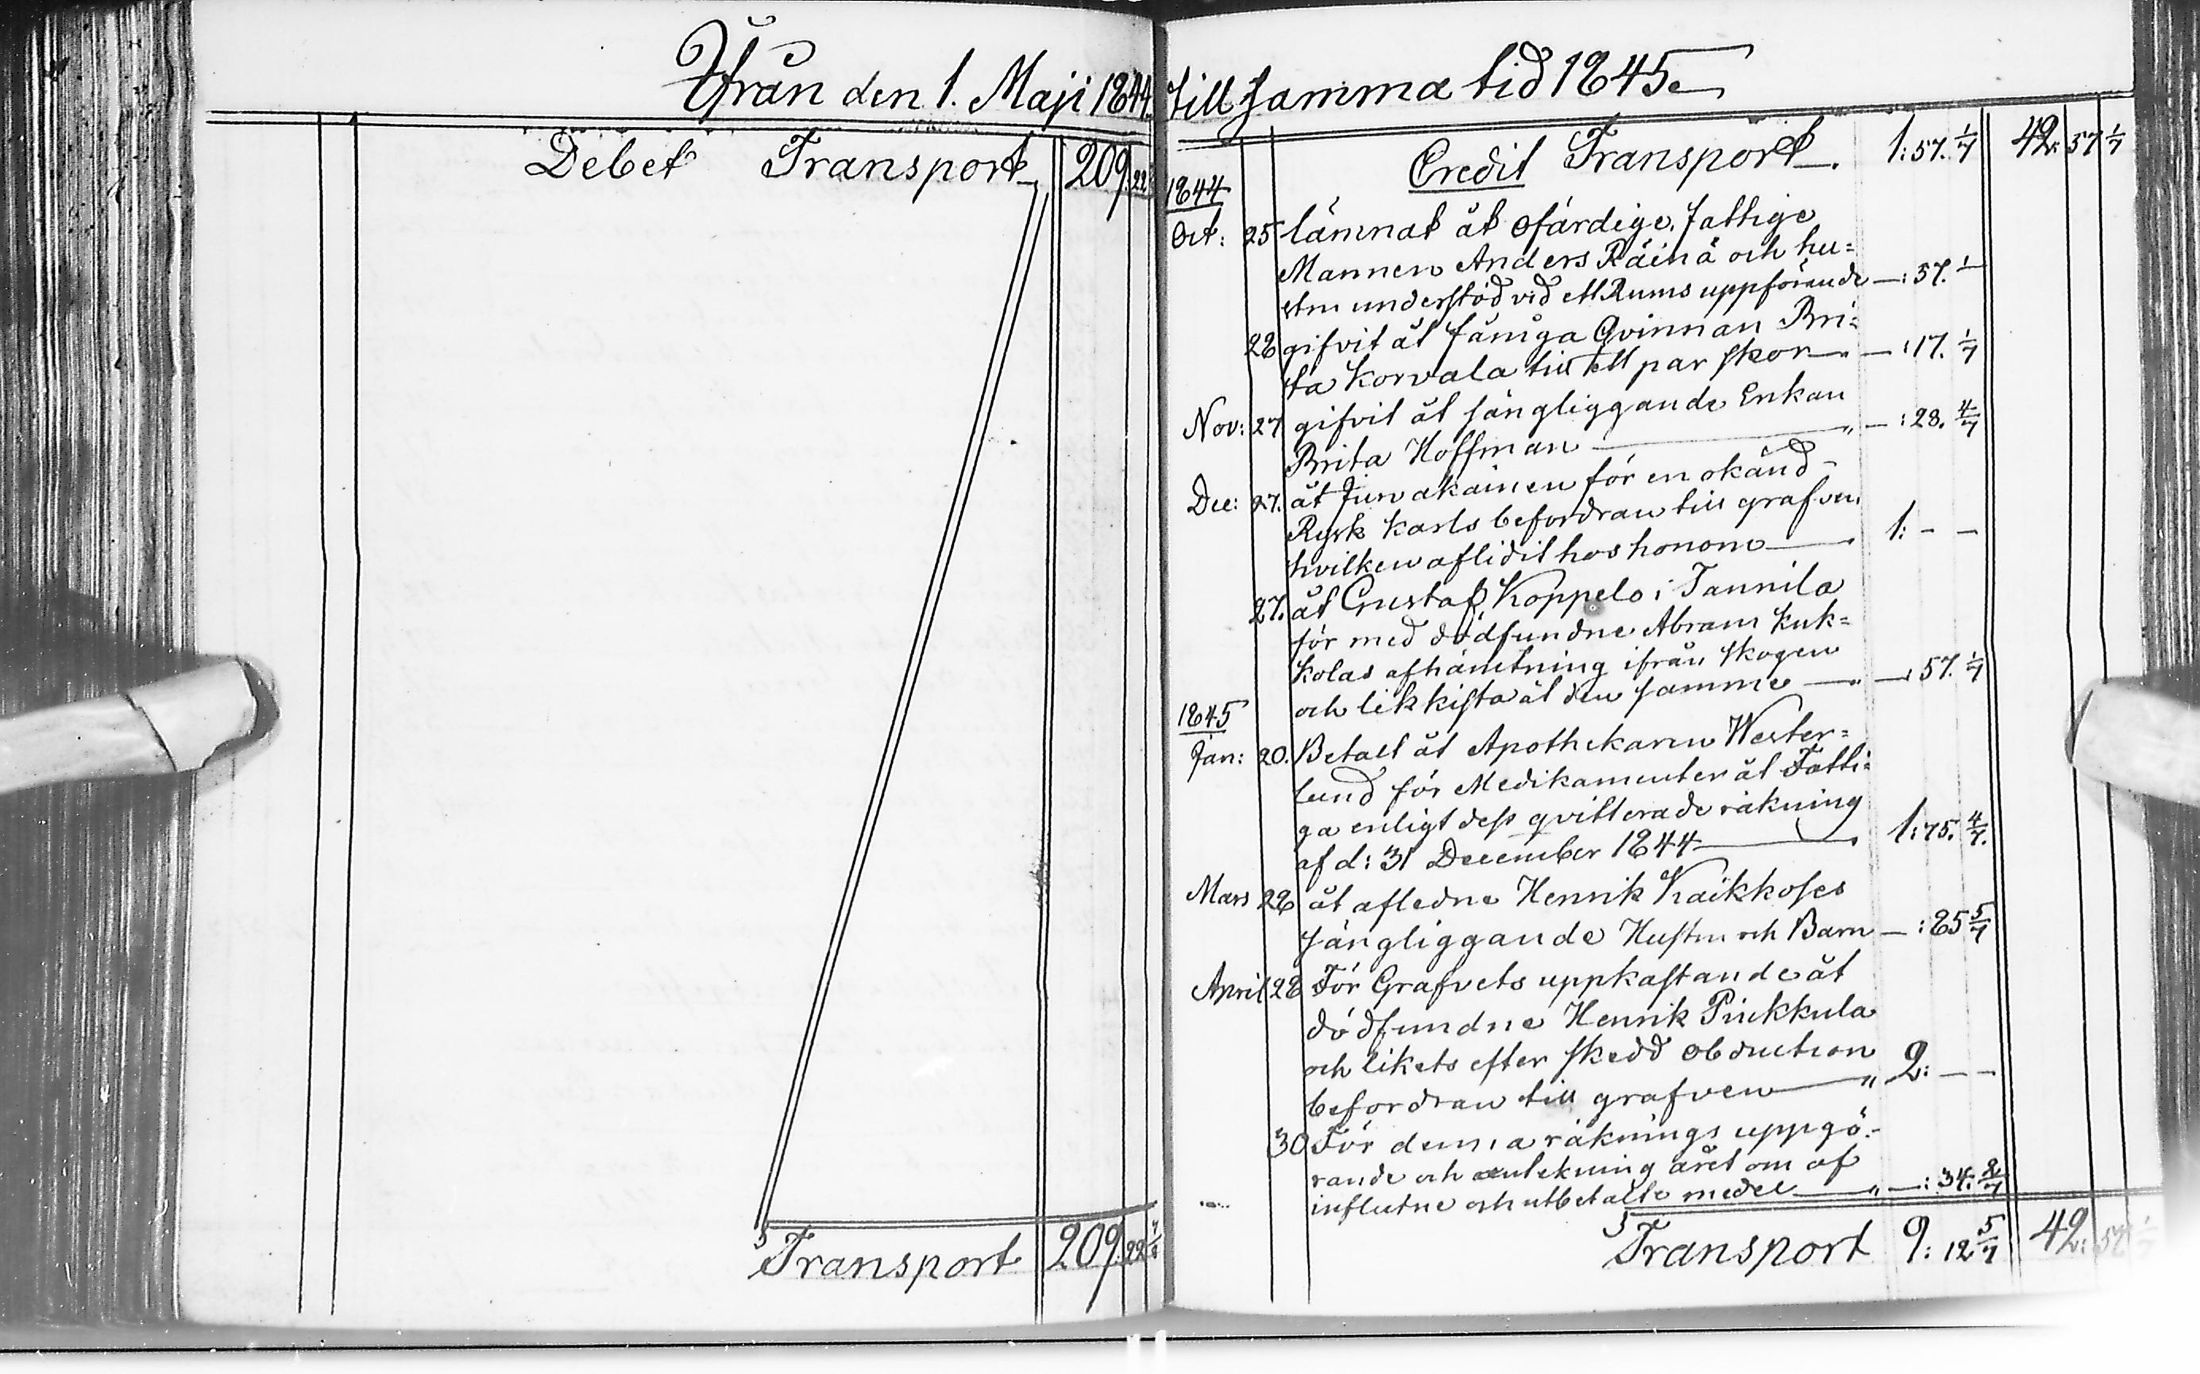 Ifrån den 1. Maji 1844. till samma tid 1845.
Debet Transport 209. 22
Transport 209. 22
Credit Transport. 1: 57. 1/7 42: 57 1/7
1844
Oct: 25 lämnat åt ofärdige, fattige
Mannen Anders Räinä och hu=
strn understöd vid ett Rums uppförande —: 57. 1
28 gifvit åt sänga Qvinnan Bri=
ta Korvala till ett par skor —: 17. 1/7
Nov: 27 gifvit åt sängliggande Enkan
Brita Hoffman —: 28. 4/7
Dec: 27. åt Juwakainen för en okänd
Rysk Karls befordran till grafven,
hvilken aflidit hos honom 1: – –
27. åt Gustaf Koppelo i Tannila
för med dödfundne Abram Kuk=
kolas afhämtning ifrån skogen
och likkista åt den samme —: 57. 1/7
1845
Jan: 20. Betalt åt Apothekaren Wester=
lund för Medikamenter åt Fatti=
ga enligt dess qvitterade räkning
af d: 31 December 1844 1: 75. 4/7.
Mars 28 åt afledne Henrik Kaikkoses
sängliggande Hustru och Barn —: 85 5/7
April 28 För Grafvets uppkastande åt
dödfundne Henrik Piukkula
och likets efter skedd obduction
befordran till grafven 2: – –
30 För denna räknings uppgö=
rande och antekning året om af
influtne och utbetalte medel —: 34. 2/7
Transport 9: 12 5/7 42: 57 1/7